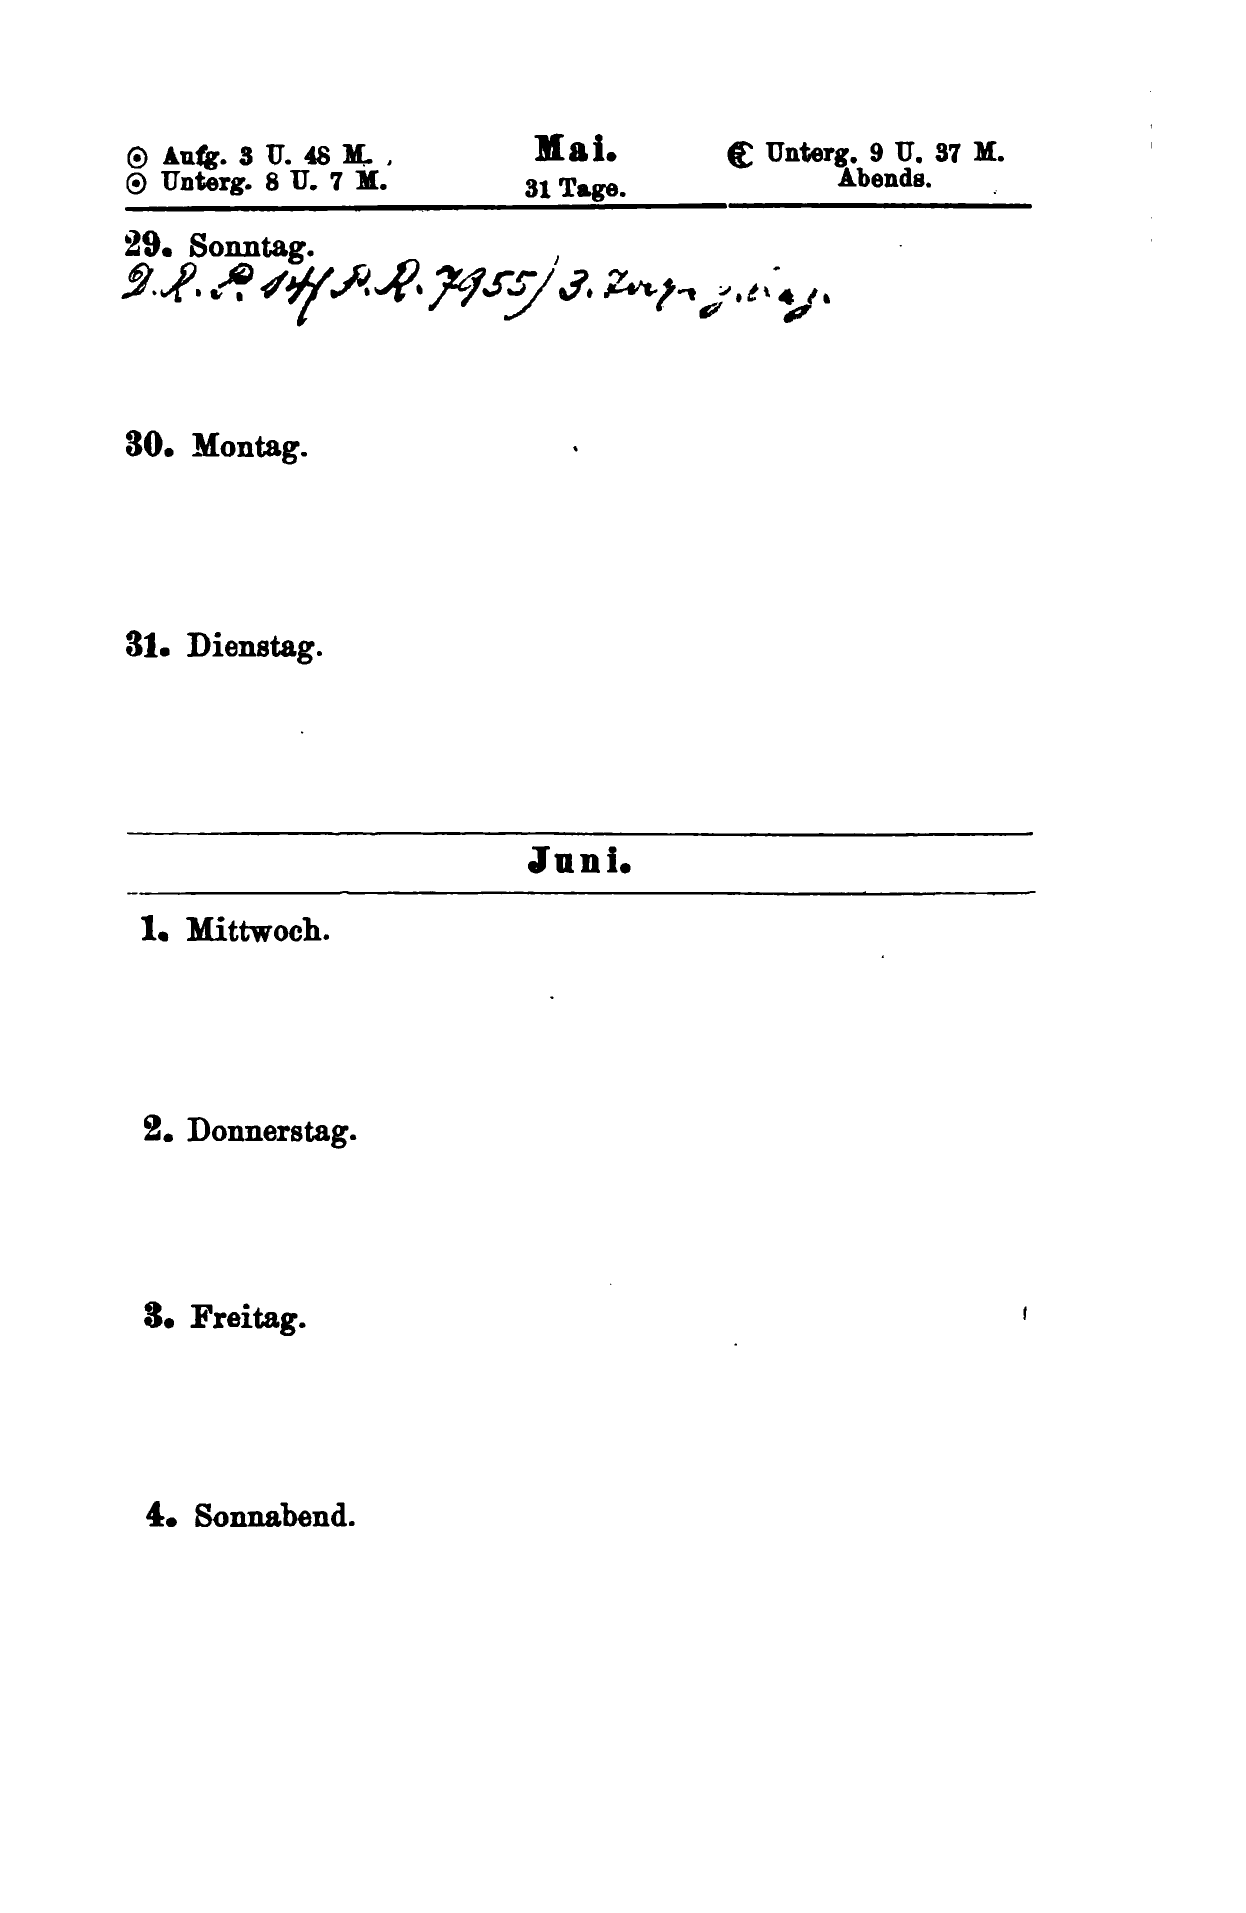 ☉ Aufg. 3 U. 48 M.
☉ Unterg. 8 U. 7 M.
Mai.
31 Tage.
☾ Unterg. 9 U. 37 M.
Abends.
29. Sonntag.
D.R.P. 14/ P.R. 7955/ 3.
30. Montag.
31. Dienstag.
Juni.
1. Mittwoch.
2. Donnerstag.
3. Freitag.
4. Sonnabend.